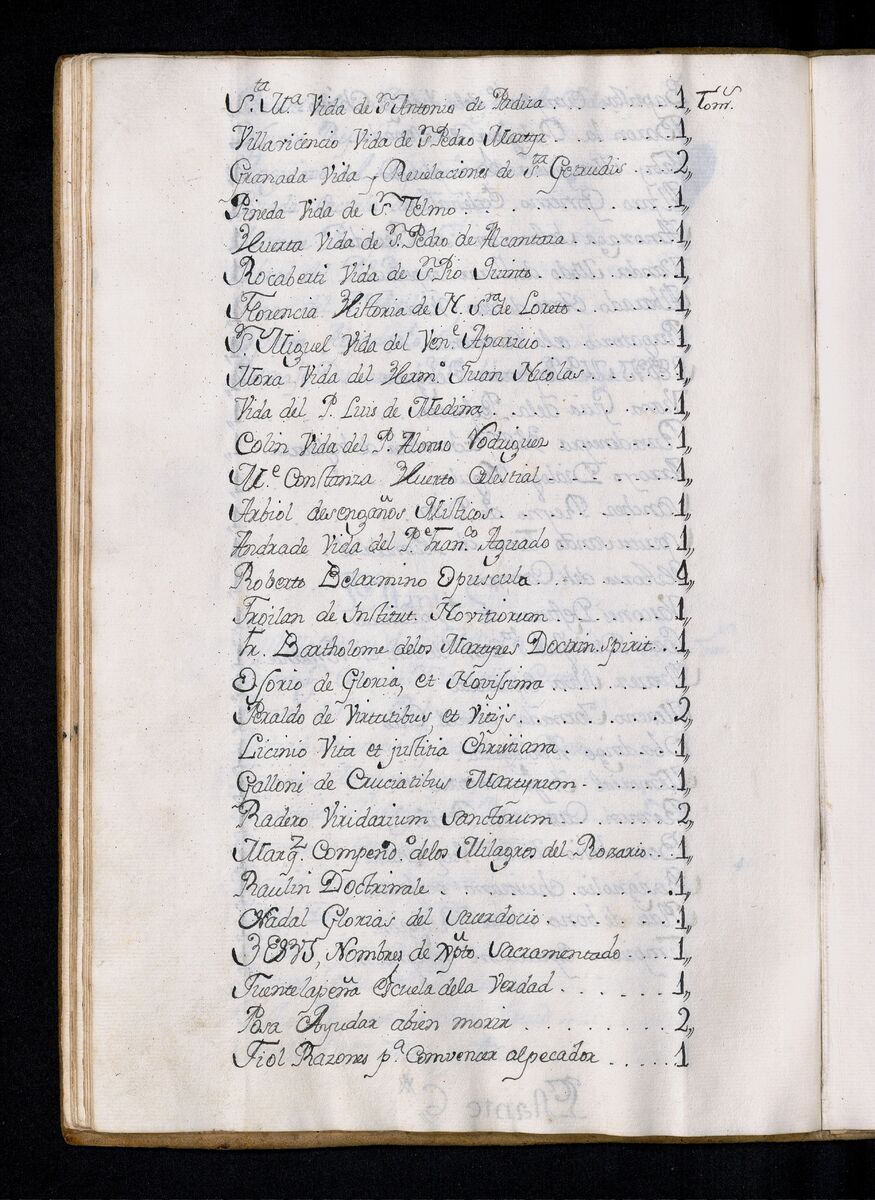 S.ta M.a Vida de Sn Antonio de Padua . . . . . 1,, Toms
Villavicencio Vida de Sn Pedro Martyr . . . . . 1,,
Granada Vida y Reuelaciones de Sta Getrudis . . 2,,
Pineda Vida de Sn Telmo . . . . . . . 1,,
Huerta Vida de Sn. Pedro de Alcantara . . . . 1,,
Rocaberti Vida de Sn Pio Quinto . . . . . . 1,,
Florencia Historia de N. Sra de Loreto . . . . 1,,
Sn Miguel Vida del Vene Aparicio . . . . . 1,,
Mora Vida del Hermo Juan Nicolas . . . . 1,,
Vida del P. Luis de Medina . . . . . . . 1,,
Colin Vida del P. Alonso Rodriguez . . . . . 1,,
M.e Constanza Huerto Celestial . . . . . 1,,
Arbiol desengaños Misticos . . . . . . . 1,,
Andrade Vida del Pe Franco Aguado . . . . 1,,
Roberto Belarmino Opuscula . . . . . . 1,,
Froilan de Institut. Novitiorum . . . . . 1,,
Fr. Bartholome delos Martyres Doctrin. spirit . . 1,,
Osorio de Gloria, et Novissima . . . . . . 1,,
Peraldo de Virtutibus, et Vitijs . . . . . . 2,,
Licinio Vita et justitia Christiana . . . . . 1,,
Galloni de Cruciatibus Martyrum . . . . 1,,
Radero Viridarium Sanctorum . . . . . 2,,
Marqz. Compendo. delos Milagros del Rozario . . 1,,
Raulin Doctrinale . . . . . . . . . 1,,
Nadal Glorias del Sacerdocio . . . . . . 1,,
JESUS, Nombres de Xpto Sacramentado . . . 1,,
Fuentelapeña Escuela dela Verdad . . . . . . 1,,
Posa Ayudar abien morir . . . . . . . . 2,,
Fiol Razones pa Comvencer alpecador . . . . . 1